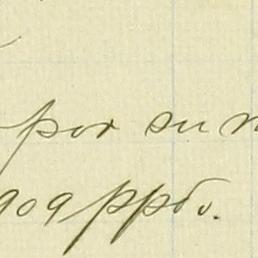 por su
909 ppdo.